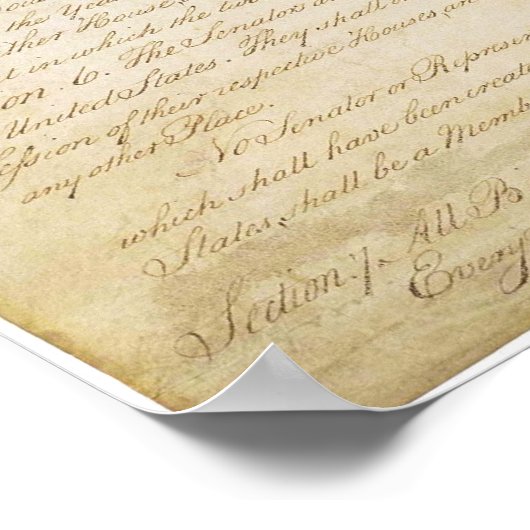 the Yea
ther House
t in which the tw
on . 6. The Senator
United States. They shall
ession of their respective Houses an
any other Place.
No Senator or Represen
which shall have been create
States, shall be a Memb
Section. 7. All B
Every